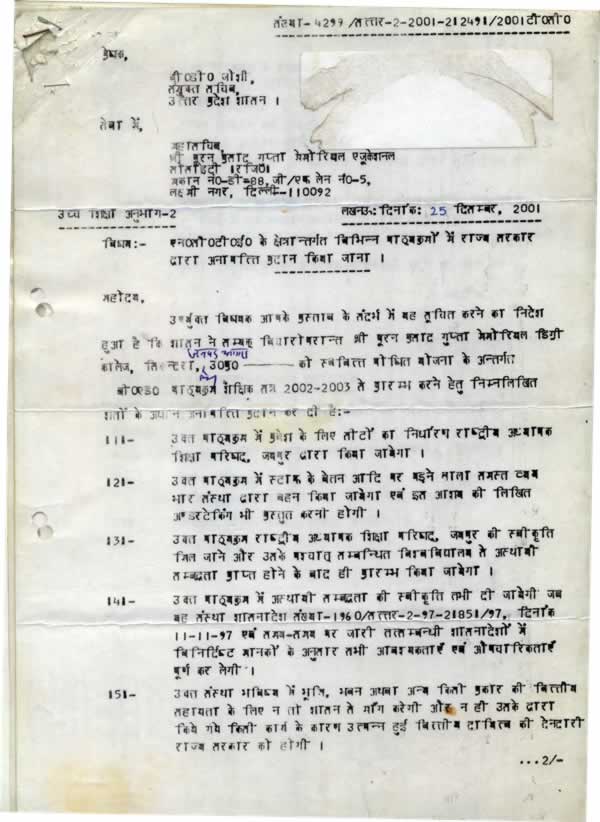 संख्या- 4299/सत्तर-2-2001-212491/2001टी0सी0
प्रेषक,
बी0डी0 जोशी,
संयुक्त सचिव,
उत्तर प्रदेश शासन ।
सेवा में,
महासचिव,
श्री पूरन प्रसाद गुप्ता मेमोरियल एजूकेशनल
सोसाइटी ।रजि0।
मकान नं0-डी-88, जी/एक लेन नं0-5,
लक्ष्मी नगर, दिल्ली-110092
उच्च शिक्षा अनुभाग-2
लखनऊ: दिनांक: 25 दिसम्बर, 2001
विषय:- एन0सी0टी0ई0 के क्षेत्रान्तर्गत विभिन्न पाठ्यक्रमों में राज्य सरकार
द्वारा अनापत्ति प्रदान किया जाना ।
महोदय,
उपर्युक्त विषयक आपके प्रस्ताव के संदर्भ में यह सूचित करने का निदेश
हुआ है कि शासन ने सम्यक विचारोपरान्त श्री पूरन प्रसाद गुप्ता मेमोरियल डिग्री
जनपद आगरा
कालेज, सिकन्दरा, उ0प्र0 को स्ववित्त पोषित योजना के अन्तर्गत
बी0एड0 पाठ्यक्रम शैक्षिक सत्र 2002-2003 से प्रारम्भ करने हेतु निम्नलिखित
शर्तों के अधीन अनापत्ति प्रदान कर दी है:-
।1।- उक्त पाठ्यक्रम में प्रवेश के लिए सीटों का निर्धारण राष्ट्रीय अध्यापक
शिक्षा परिषद, जयपुर द्वारा किया जायेगा ।
।2।- उक्त पाठ्यक्रम में स्टाफ के वेतन आदि पर पड़ने वाला समस्त व्यय
भार संस्था द्वारा वहन किया जायेगा एवं इस आशय की लिखित
अण्डरटेकिंग भी प्रस्तुत करनी होगी ।
।3।- उक्त पाठ्यक्रम राष्ट्रीय अध्यापक शिक्षा परिषद, जयपुर की स्वीकृति
मिल जाने और उसके पश्चात् सम्बन्धित विश्वविद्यालय से अस्थायी
सम्बद्धता प्राप्त होने के बाद ही प्रारम्भ किया जायेगा ।
।4।- उक्त पाठ्यक्रम में अस्थायी सम्बद्धता की स्वीकृति तभी दी जायेगी जब
यह संस्था शासनादेश संख्या-1960/सत्तर-2-97-21851/97, दिनांक
11-11-97 एवं समय-समय पर जारी तत्सम्बन्धी शासनादेशों में
विनिर्दिष्ट मानकों के अनुसार सभी आवश्यकताएँ एवं औपचारिकताएँ
पूर्ण कर लेगी ।
।5।- उक्त संस्था भविष्य में भूमि, भवन अथवा अन्य किसी प्रकार की वित्तीय
सहायता के लिए न तो शासन से माँग करेगी और न ही उसके द्वारा
किये गये किसी कार्य के कारण उत्पन्न हुई वित्तीय दायित्व की देनदारी
राज्य सरकार को होगी ।
...2/-